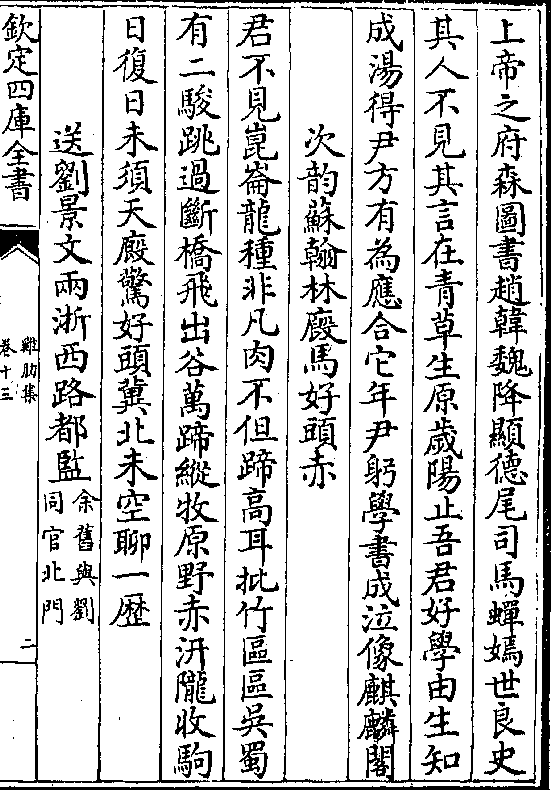 上帝之府森圖書趙韓魏降顯德尾司馬蟬嫣世良史
其人不見其言在青草生原歲陽止吾君好學由生知
成湯得尹方有為應合它年尹躬學書成泣像麒麟閣
次韵蘇翰林廏馬好頭赤
君不見崑崙龍種非凡肉不但蹄高耳批竹區區吳蜀
有二駿跳過斷橋飛出谷萬蹄縱牧原野赤汧隴收駒
日復日未須天廏驚好頭冀北未空聊一歴
送劉景文兩浙西路都監
余舊與劉
同官北門
欽定四庫全書
雞肋集
卷十三
二